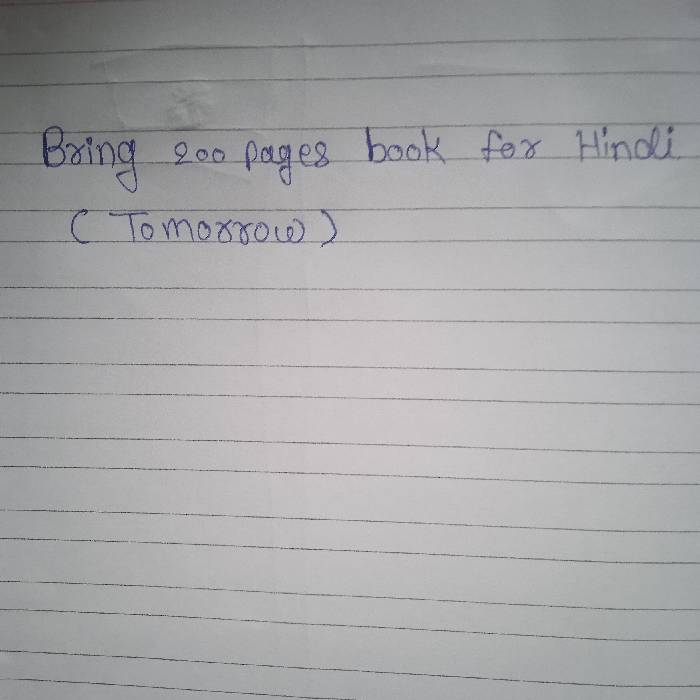 Bring 200 pages book for Hindi
( Tomorrow )